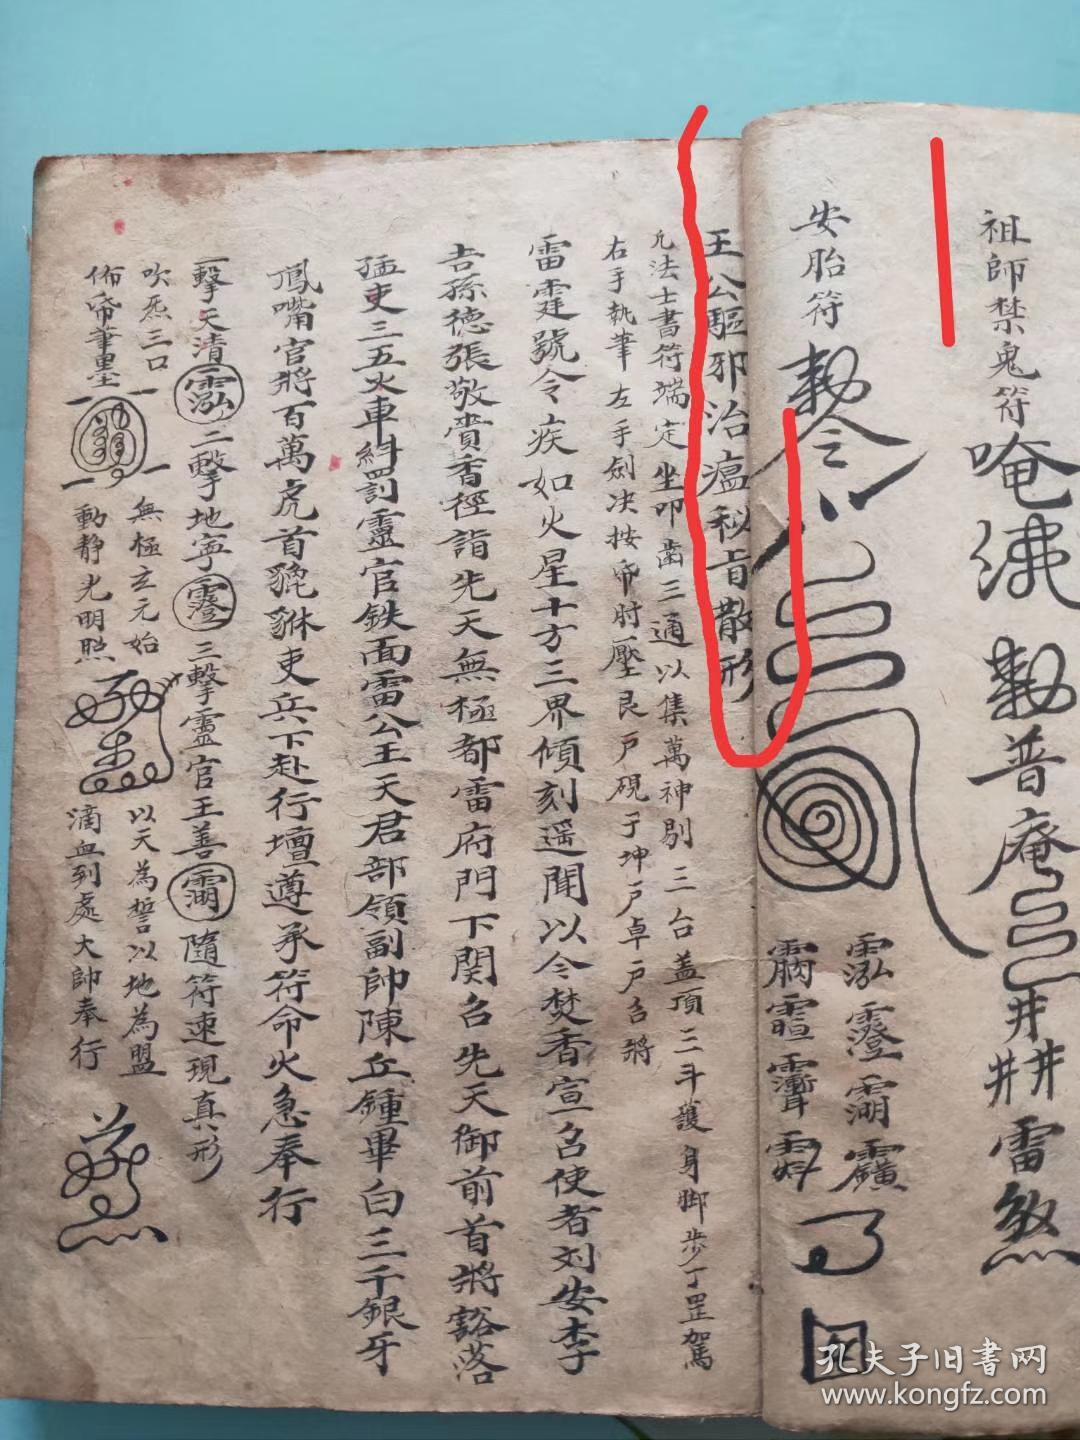 祖師禁鬼符
唵 勅普庵 雷煞
安胎符
勅令
王公驅邪治瘟秘旨散形
凢法士書符端定坐叩齒三通以集萬神剔三台盖頂三斗護身脚步丁罡駕
右手執筆左手劍決按帝肘壓艮戶硯于坤戶卓戶召將
雷霆號令疾如火星十方三界傾刻遥聞以今焚香宣召使者刘安李
吉孫德張敬賫香徑詣先天無極都雷府門下関召先天御前首將豁落
猛吏三五火車糾罰靈官鉄面雷公王天君部領副帥陳丘鍾畢白三千銀牙
鳳嘴官將百萬虎首貔貅吏兵下赴行壇遵承符命火急奉行
一擊天清 二擊地寧 三擊靈官王善 隨符速現真形
吹炁三口 無極立元始 以天為誓以地為盟
佈帝筆墨 動静光明照 滴血到處大帥奉行
孔夫子旧书网
www.kongfz.com